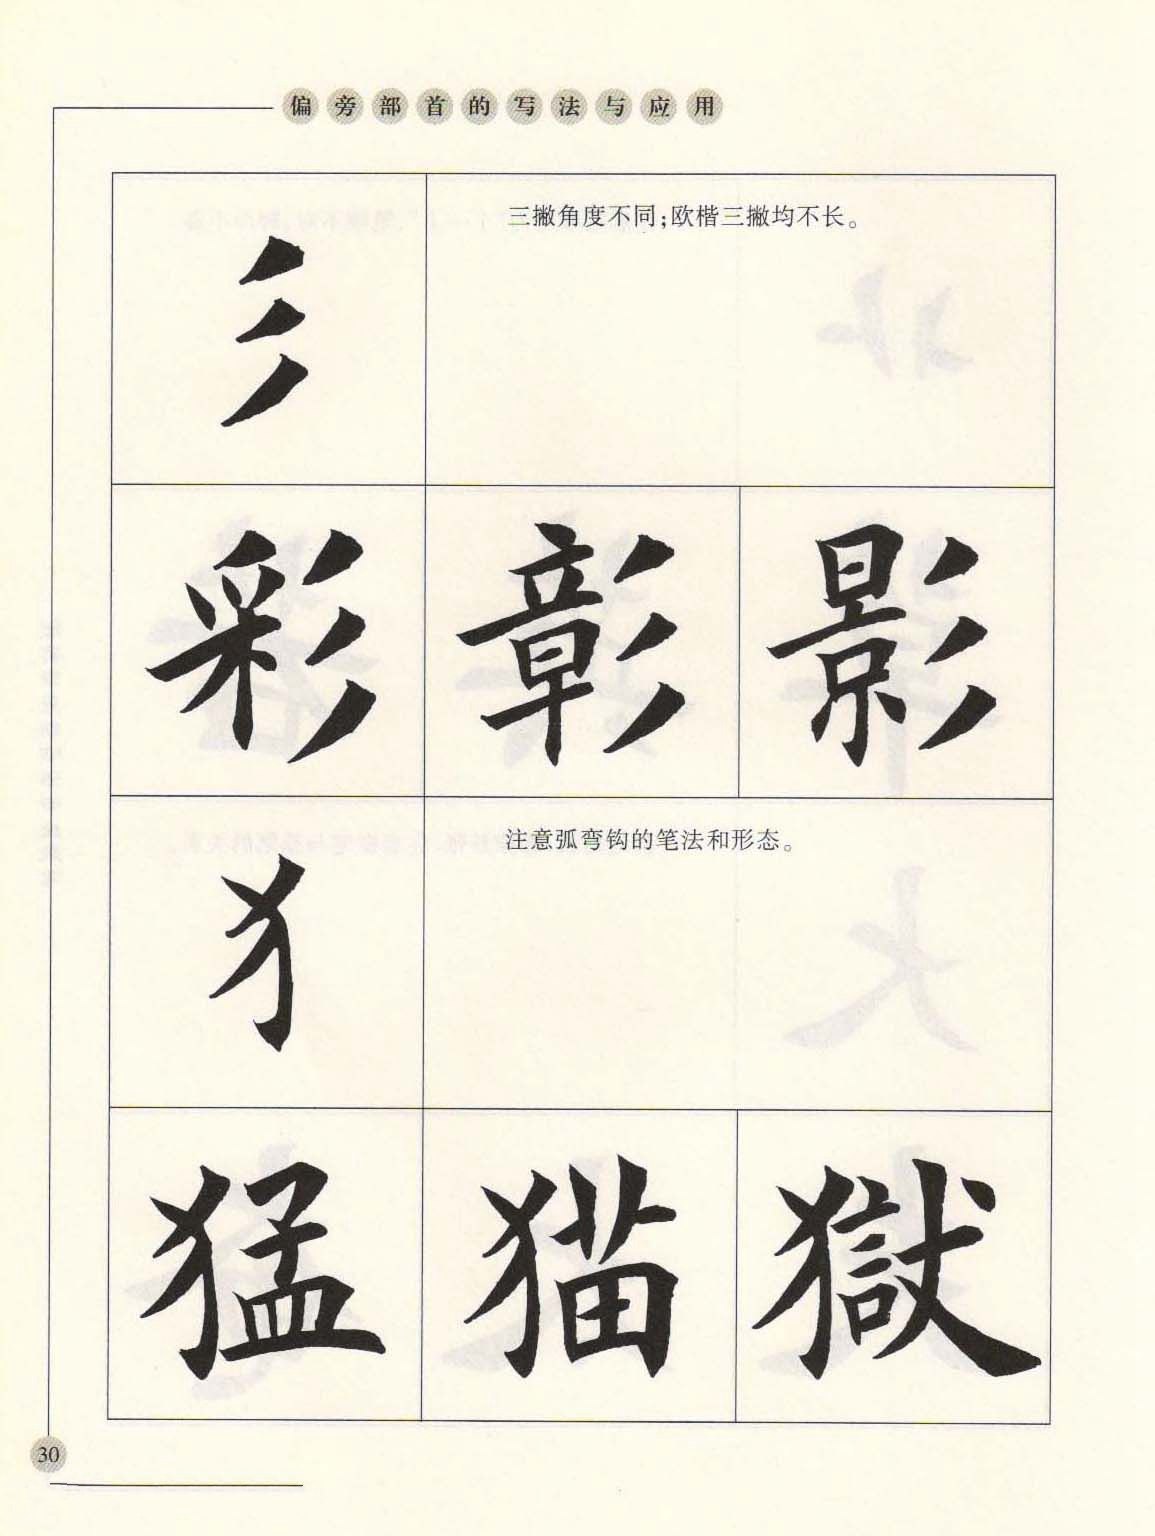 偏旁部首的写法与应用
彡
三撇角度不同；欧楷三撇均不长。
彩 彰 影
犭
注意弧弯钩的笔法和形态。
猛 猫 獄
30